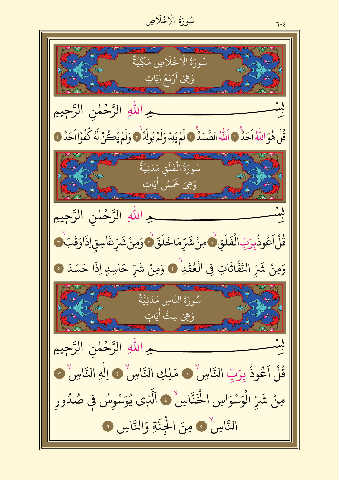 سُورَةُ الْإِخْلَاصِ
٦٠٤
سُورَةُ الْاِخْلَاصِ مَكِّيَّةٌ
وَهِيَ اَرْبَعُ اٰيَاتٍ
بِسْمِ اللهِ الرَّحْمٰنِ الرَّحِيمِ
قُلْ هُوَ اللهُ اَحَدٌ ۝١ اَللهُ الصَّمَدُ ۝٢ لَمْ يَلِدْ وَلَمْ يُولَدْ ۝٣ وَلَمْ يَكُنْ لَهُ كُفُوًا اَحَدٌ ۝٤
سُورَةُ الْفَلَقِ مَدَنِيَّةٌ
وَهِيَ خَمْسُ اٰيَاتٍ
بِسْمِ اللهِ الرَّحْمٰنِ الرَّحِيمِ
قُلْ اَعُوذُ بِرَبِّ الْفَلَقِ ۝١ مِنْ شَرِّ مَا خَلَقَ ۝٢ وَمِنْ شَرِّ غَاسِقٍ اِذَا وَقَبَ ۝٣
وَمِنْ شَرِّ النَّفَّاثَاتِ فِي الْعُقَدِ ۝٤ وَمِنْ شَرِّ حَاسِدٍ اِذَا حَسَدَ ۝٥
سُورَةُ النَّاسِ مَدَنِيَّةٌ
وَهِيَ سِتُّ اٰيَاتٍ
بِسْمِ اللهِ الرَّحْمٰنِ الرَّحِيمِ
قُلْ اَعُوذُ بِرَبِّ النَّاسِ ۝١ مَلِكِ النَّاسِ ۝٢ اِلٰهِ النَّاسِ ۝٣
مِنْ شَرِّ الْوَسْوَاسِ الْخَنَّاسِ ۝٤ اَلَّذِي يُوَسْوِسُ فِي صُدُورِ
النَّاسِ ۝٥ مِنَ الْجِنَّةِ وَالنَّاسِ ۝٦